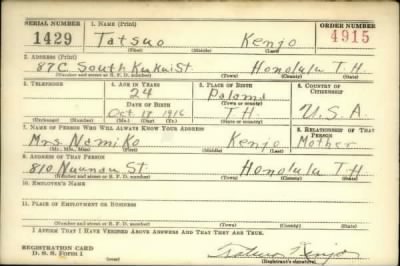 SERIAL NUMBER 1. NAME (Print) ORDER NUMBER
1429 Tatsuo Kenjo 4915
(First) (Middle) (Last)
2. ADDRESS (Print)
87C South Kukui St Honolulu T.H
(Number and street or R. F. D. number) (Town) (County) (State)
3. TELEPHONE 4. AGE IN YEARS 5. PLACE OF BIRTH 6. COUNTRY OF CITIZENSHIP
24 Palama
DATE OF BIRTH (Town or county)
Oct 17 1916 T.H U.S.A.
(Exchange) (Number) (Mo.) (Day) (Yr.) (State or country)
7. NAME OF PERSON WHO WILL ALWAYS KNOW YOUR ADDRESS 8. RELATIONSHIP OF THAT PERSON
Mrs. Namiko Kenjo Mother
(Mr., Mrs., Miss) (First) (Middle) (Last)
9. ADDRESS OF THAT PERSON
810 Nuuanu St Honolulu T.H
(Number and street or R. F. D. number) (Town) (County) (State)
10. EMPLOYER'S NAME
11. PLACE OF EMPLOYMENT OR BUSINESS
(Number and street or R. F. D. number) (Town) (County) (State)
I AFFIRM THAT I HAVE VERIFIED ABOVE ANSWERS AND THAT THEY ARE TRUE.
REGISTRATION CARD
D. S. S. Form 1 Tatsuo Kenjo
(Registrant's signature)